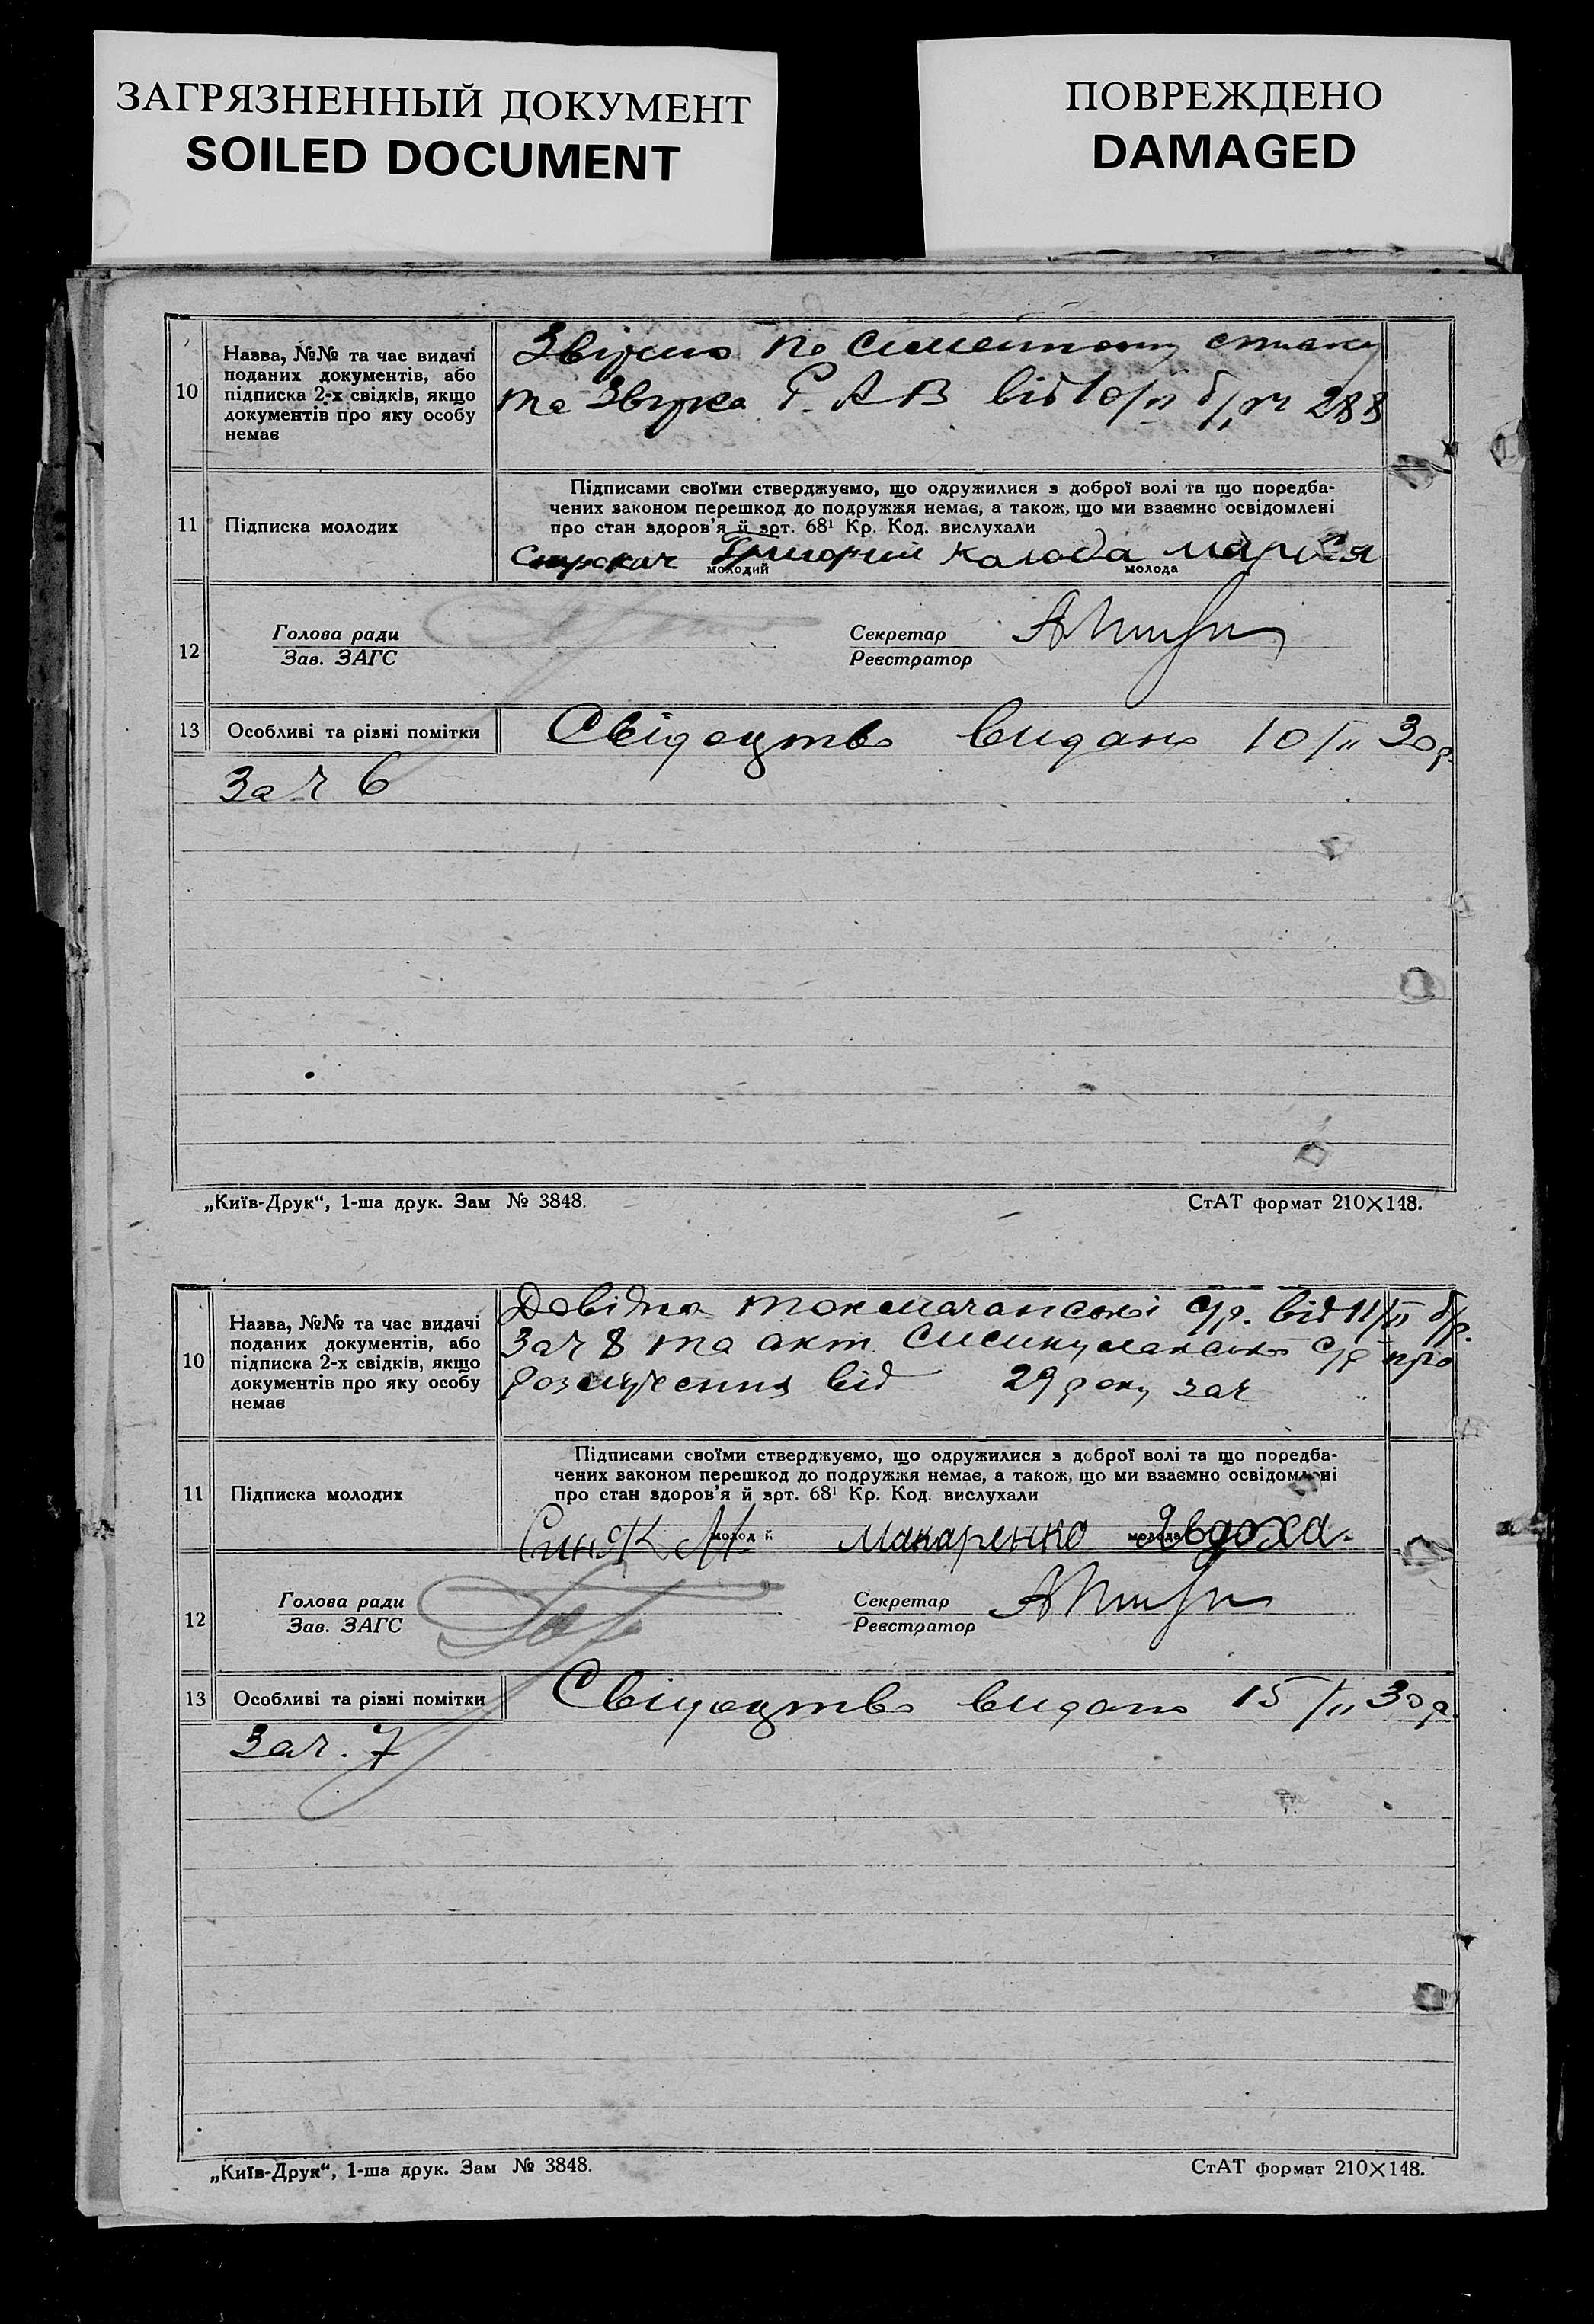 ЗАГРЯЗНЕННЫЙ ДОКУМЕНТ
SOILED DOCUMENT
ПОВРЕЖДЕНО
DAMAGED
10
Назва, №№ та час видачі
поданих документів, або
підписка 2-х свідків, якщо
документів про яку особу
немає
Звірено по сименному списку
та Р. А В від 10/II б/р ч 288
11
Підписка молодих
Підписами своїми стверджуємо, що одружилися з доброї волі та що поредба-
чених законом перешкод до подружжя немає, а також, що ми взаємно освідомлені
про стан здоров'я й арт. 68¹ Кр. Код. вислухали
Григорий Колода Маруся
молодий молода
12
Голова ради
Зав. ЗАГС
Секретар
Реєстратор
13
Особливі та різні помітки
Свідоцтво видано 10/II 30р.
За ч 6
„Київ-Друк“, 1-ша друк. Зам № 3848.
СтАТ формат 210×148.
10
Назва, №№ та час видачі
поданих документів, або
підписка 2-х свідків, якщо
документів про яку особу
немає
Довідка токмачанської с/р. від 11/II б/р.
За ч 8 та акт с/р про
розлучення від 29 року за ч
11
Підписка молодих
Підписами своїми стверджуємо, що одружилися з доброї волі та що поредба-
чених законом перешкод до подружжя немає, а також, що ми взаємно освідомлені
про стан здоров'я й арт. 68¹ Кр. Код. вислухали
Синяк М Макаренко Явдоха.
молодий молода
12
Голова ради
Зав. ЗАГС
Секретар
Реєстратор
13
Особливі та різні помітки
Свідоцтво видано 15/II 30р.
За ч. 7
„Київ-Друк“, 1-ша друк. Зам № 3848.
СтАТ формат 210×148.